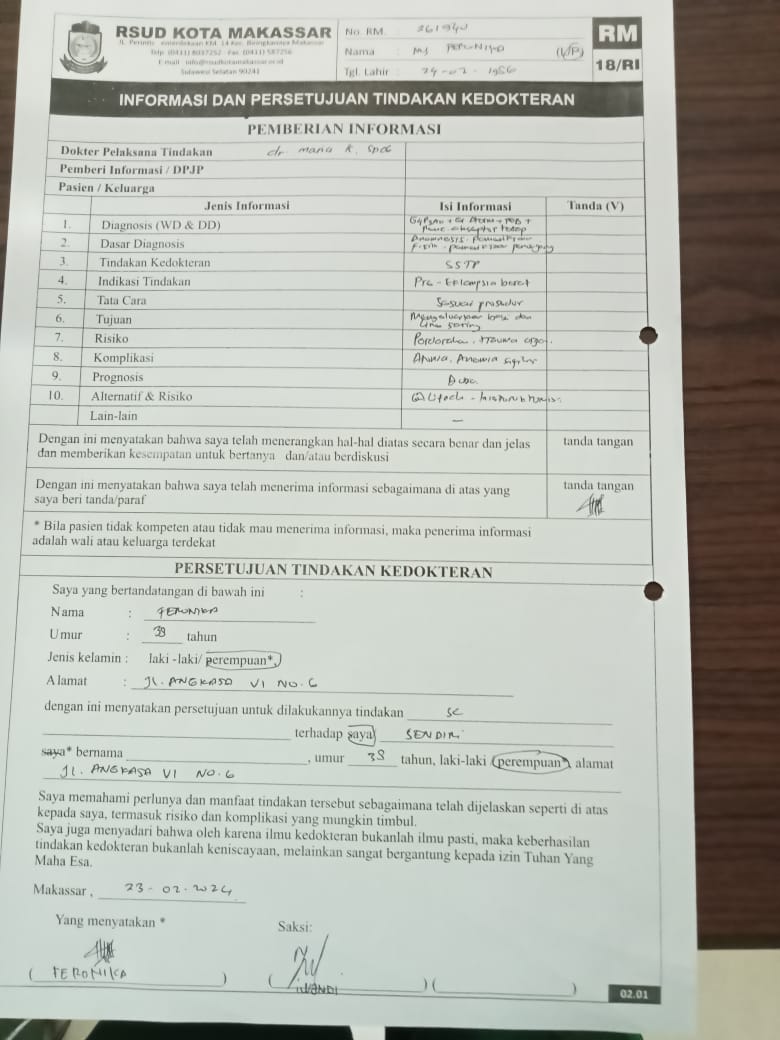 RSUD KOTA MAKASSAR
Jl. Perintis Kemerdekaan KM. 14 Kec. Biringkanaya Makassar
Telp. (0411) 8037252 Fax. (0411) 587256
E-mail
Sulawesi Selatan 90241
No. RM. : 261940
Nama : Ny (L/P)
Tgl. Lahir : 24-02-1986
RM
18/RI
INFORMASI DAN PERSETUJUAN TINDAKAN KEDOKTERAN
PEMBERIAN INFORMASI
Dokter Pelaksana Tindakan dr. Maria K, SpOG
Pemberi Informasi / DPJP
Pasien / Keluarga
Jenis Informasi Isi Informasi Tanda (V)
1. Diagnosis (WD & DD)
2. Dasar Diagnosis Anamnesis
3. Tindakan Kedokteran SSTP
4. Indikasi Tindakan Pre-Eklampsia berat
5. Tata Cara Sesuai prosedur
6. Tujuan
7. Risiko trauma organ
8. Komplikasi
9. Prognosis
10. Alternatif & Risiko
Lain-lain —
Dengan ini menyatakan bahwa saya telah menerangkan hal-hal diatas secara benar dan jelas
dan memberikan kesempatan untuk bertanya dan/atau berdiskusi
tanda tangan
Dengan ini menyatakan bahwa saya telah menerima informasi sebagaimana di atas yang
saya beri tanda/paraf
tanda tangan
* Bila pasien tidak kompeten atau tidak mau menerima informasi, maka penerima informasi
adalah wali atau keluarga terdekat
PERSETUJUAN TINDAKAN KEDOKTERAN
Saya yang bertandatangan di bawah ini :
Nama : FERONIKA
Umur : 38 tahun
Jenis kelamin : laki -laki/ perempuan*,
Alamat : JL. ANGKASA VI NO. 6
dengan ini menyatakan persetujuan untuk dilakukannya tindakan SC
terhadap saya SENDIRI
saya* bernama , umur 38 tahun, laki-laki (perempuan*, alamat
JL. ANGKASA VI NO. 6
Saya memahami perlunya dan manfaat tindakan tersebut sebagaimana telah dijelaskan seperti di atas
kepada saya, termasuk risiko dan komplikasi yang mungkin timbul.
Saya juga menyadari bahwa oleh karena ilmu kedokteran bukanlah ilmu pasti, maka keberhasilan
tindakan kedokteran bukanlah keniscayaan, melainkan sangat bergantung kepada izin Tuhan Yang
Maha Esa.
Makassar , 23-02-2024
Yang menyatakan * Saksi:
( FERONIKA ) ( IWANDI ) ( )
02.01